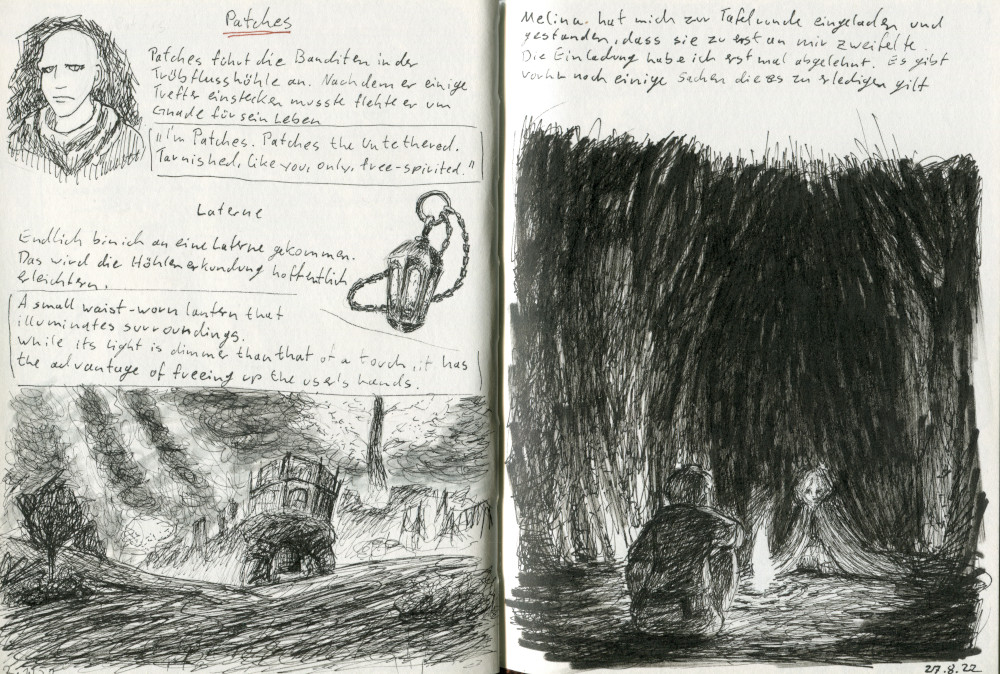 Patches
Patches führt die Banditen in der
Trübflusshöhle an. Nachdem er einige
Treffer einstecken musste flehte er um
Gnade für sein Leben
"I'm Patches. Patches the Untethered.
Tarnished, like you, only, free-spirited."
Laterne
Endlich bin ich an eine Laterne gekommen.
Das wird die Höhlenerkundung hoffentlich
erleichtern.
A small waist-worn lantern that
illuminates surroundings.
while its light is dimmer than that of a torch, it has
the advantage of freeing up the user's hands.
Melina hat mich zur Tafelrunde eingeladen und
gestanden, dass sie zu erst an mir zweifelte.
Die Einladung habe ich erst mal abgelehnt. Es gibt
vorher noch einige Sachen die es zu erledigen gilt
27.8.22